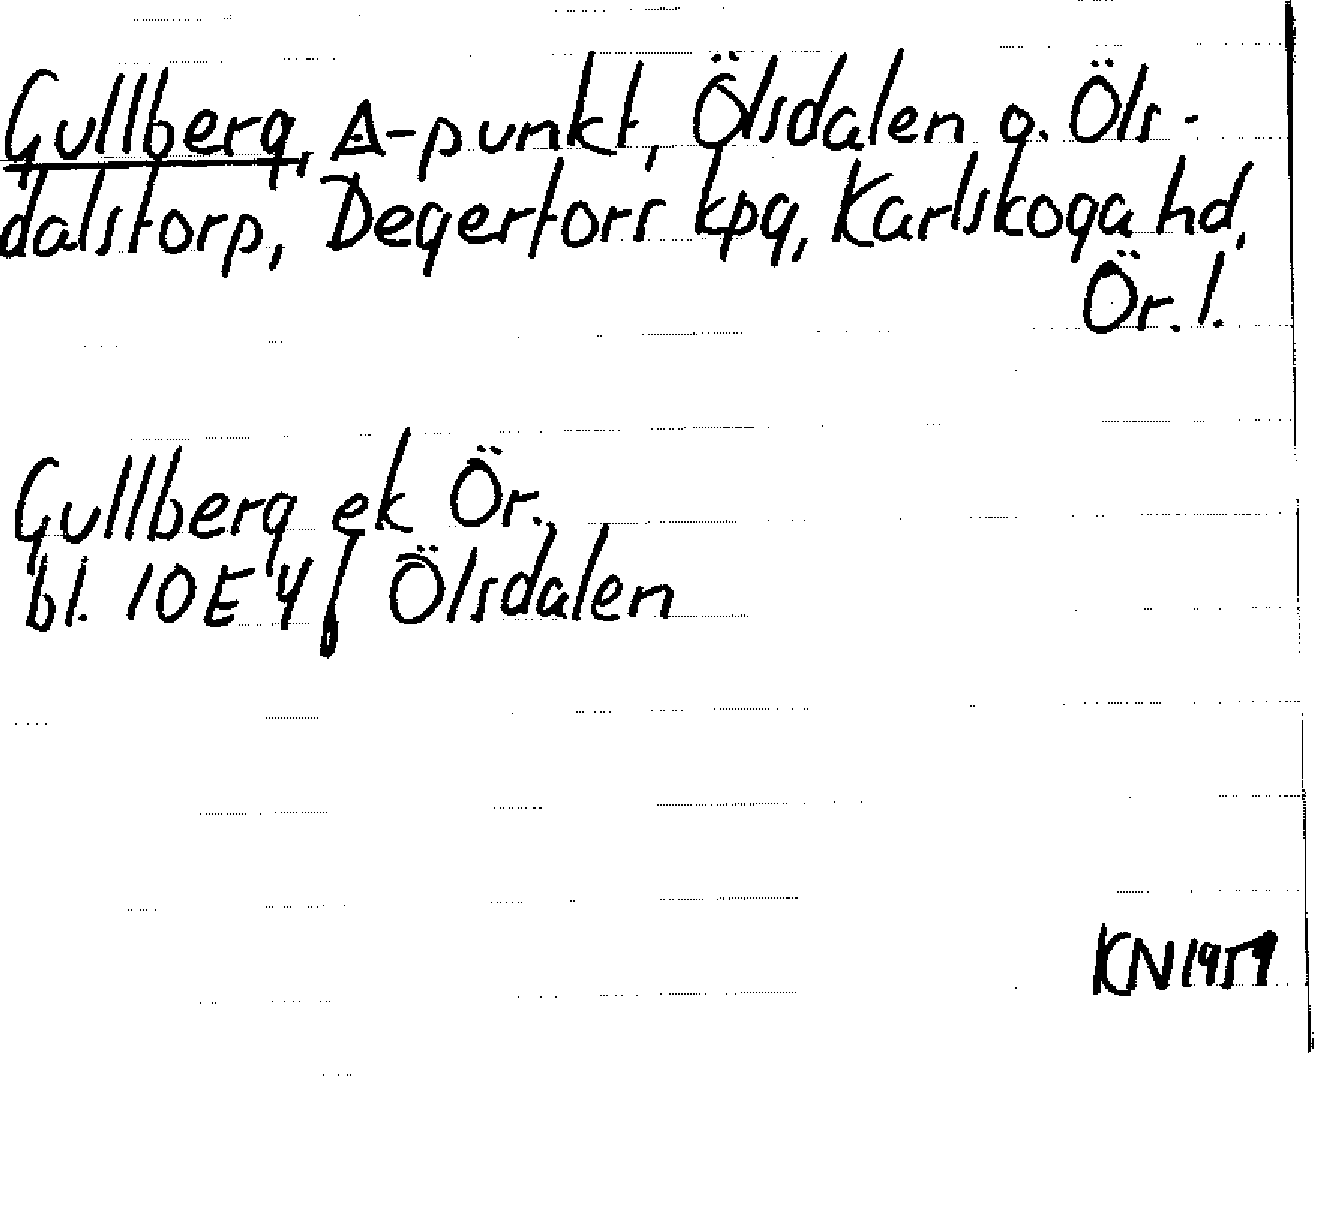 Gullberg, A-punkt, Ölsdalen o. Öls-
dalstorp, Degerfors kpg, Karlskoga hd,
Ör. l.
Gullberg ek Ör.,
bl. 10E 4f Ölsdalen
KN 1959